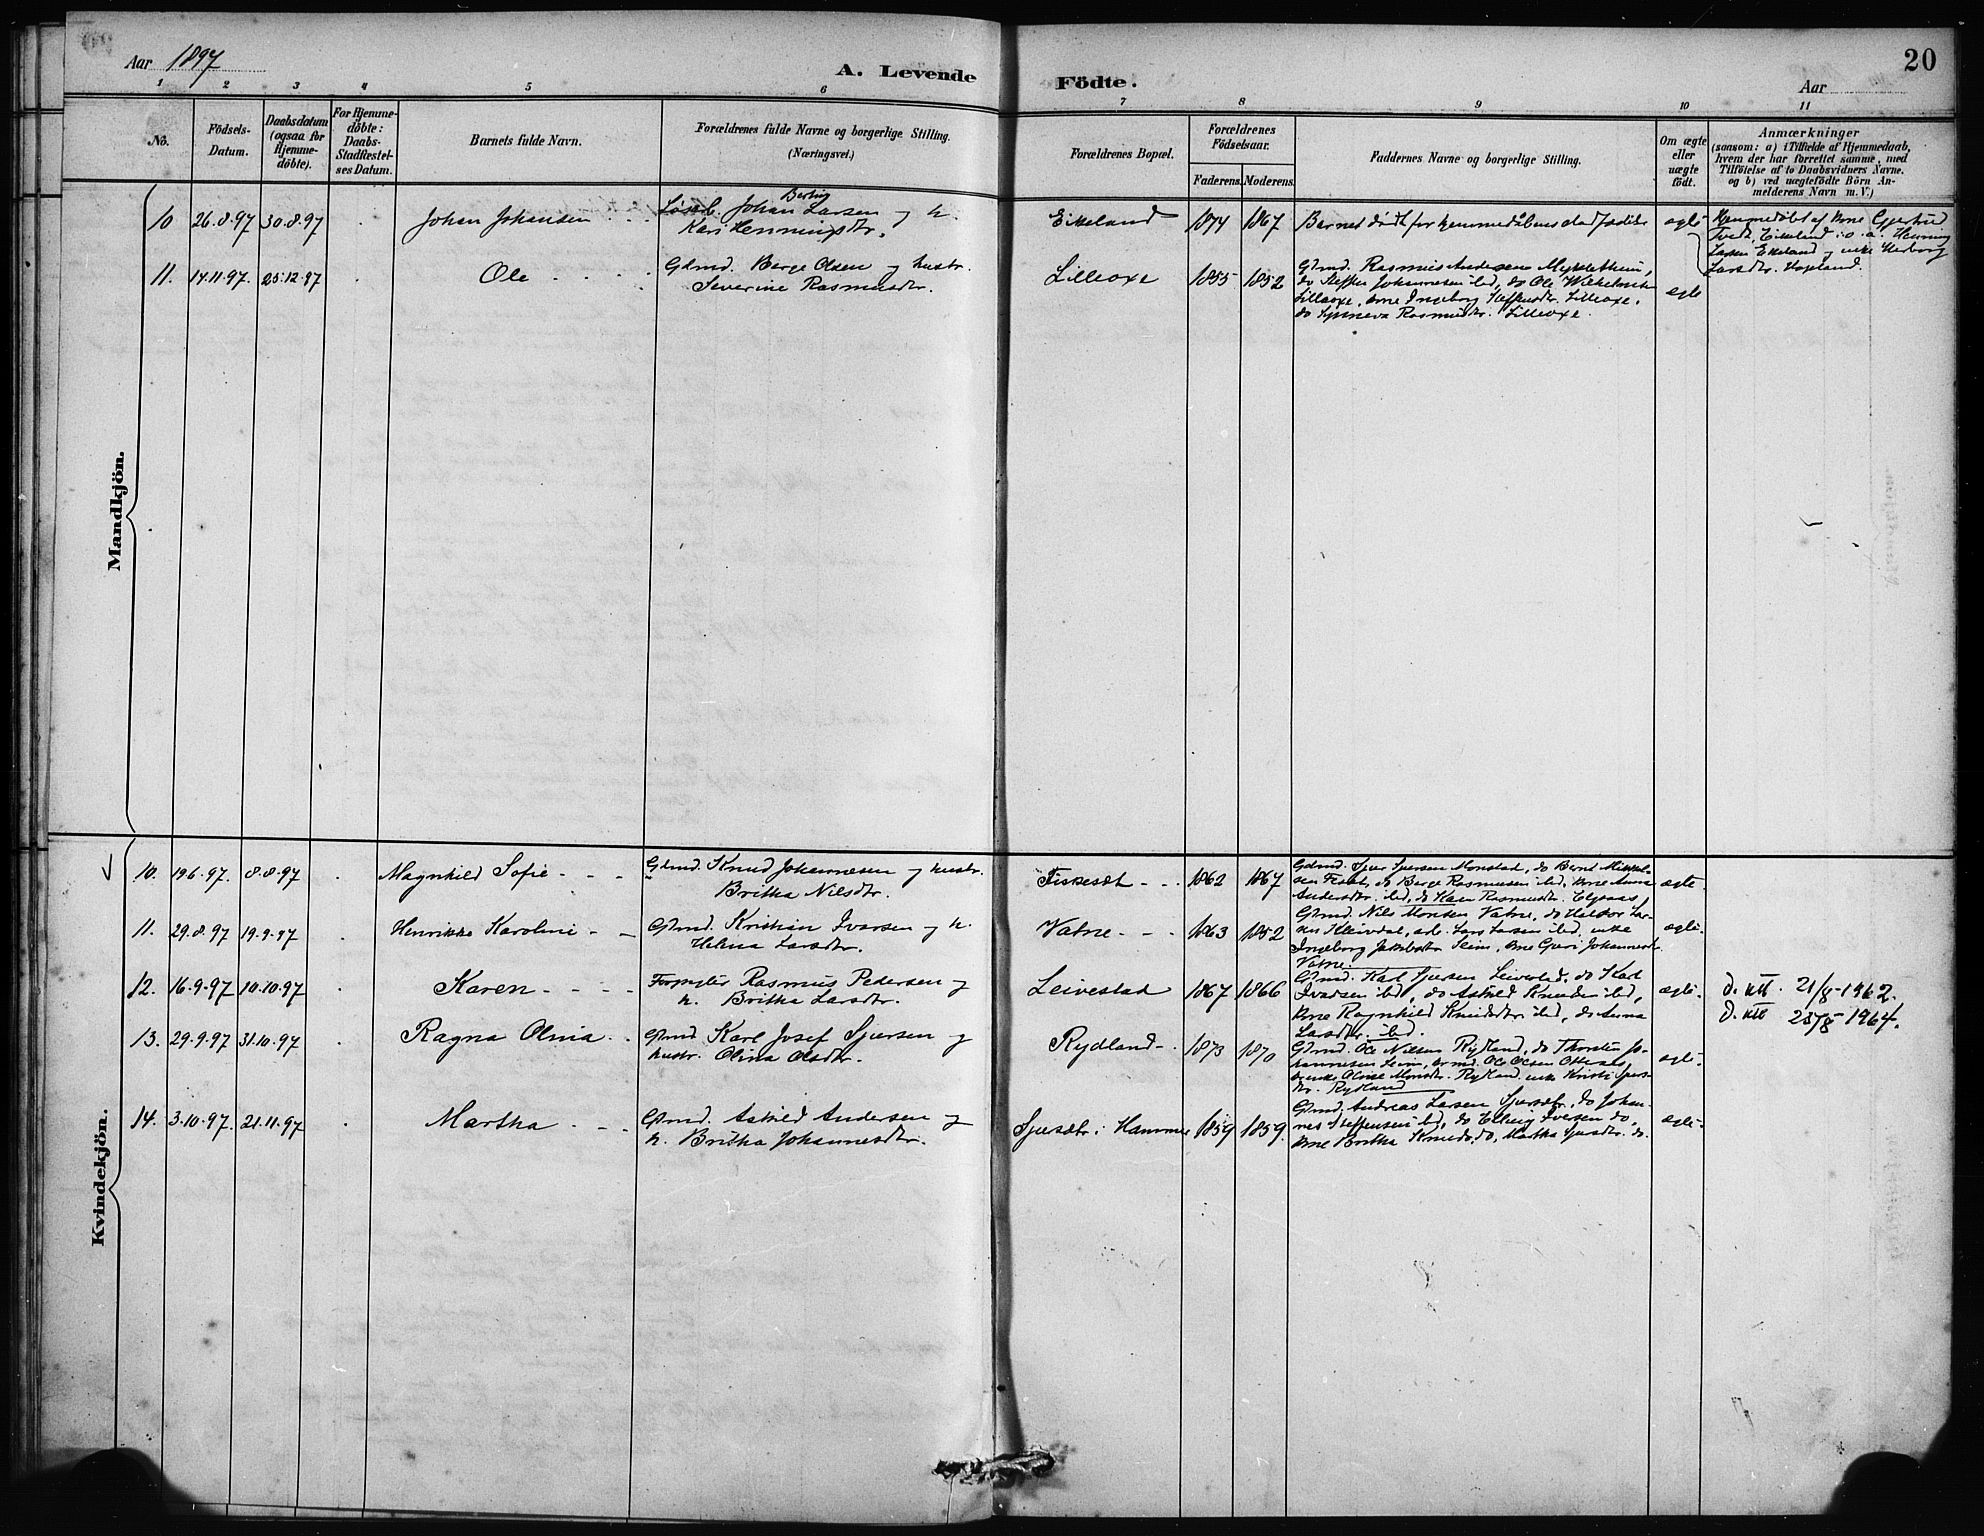 20
Aar 1897
A. Levende Födte.
Aar
1 2 3 4 5 6 7 8 9 10 11
No.
Födsels-Datum.
Daabsdatum (ogsaa for Hjemme-döbte).
For Hjemme-döbte: Daabs-Stadfæstel-ses Datum.
Barnets fulde Navn.
Forældrenes fulde Navne og borgerlige Stilling.
(Næringsvei.)
Forældrenes Bopæl.
Forældrenes Födselsaar.
Faderens. Moderens.
Faddernes Navne og borgerlige Stilling.
Om ægte eller uægte födt.
Anmærkninger
(saasom: a) i Tilfælde af Hjemmedaab,
hvem der har forrettet samme, med
Tilföielse af to Daabsvidners Navne.
og b) ved uægtefödte Börn An-
melderens Navn m. V.)
Mandkjön.
10 26.8.97 30.8.97 Johan Johansen
Johan Larsen og h.
Kari Henningsdtr.
Eikeland 1874 1867
Barnet dødt før hjemmedåbens stadfæstelse
ægte
Hjemmedøbt af kone Gjertrud
Tvedt, Eikeland; o. a. Henning
Larsen Eikeland og enke Herborg
Larsdtr. Hopland.
11. 14.11.97. 25.12.97 Ole
Gdmd. Børge Olsen og hustr.
Severine Rasmusdtr.
Lilleoxe 1855 1852
Gdmd. Rasmus Andersen Myklethun,
do Steffen Johannesen ibd, do Ole Wilhelmsen
Lilleoxe, kone Ingeborg Steffensdtr. Lilleoxe,
do Synneva Rasmusdtr. Lilleoxe.
ægte
Kvindekjön.
10. 19.6.97. 8.8.97 Magnhild Sofie
Gdmd. Knud Johannesen og hustr.
Britha Nilsdtr.
Fiskesæt 1862 1867
Gdmd. Sjur Sjursen Monstad, do Bernt Mikkel-
sen Fiskset, do Børge Rasmusen ibd, kone Anna
Andersdtr. ibd, do Kari Rasmusdtr.
ægte.
11. 29.8.97 19.9.97 Henrikke Karoline
Gdmd. Kristian Ivarsen og h.
Helena Larsdtr.
Vatne 1863 1852
Gdmd. Nils Monsen Vatne, do Haldor Lar-
sen Kleivdal, arb. Lars Larsen ibd, enke
Ingeborg Jakobsdtr Seim, kone Guri Johannesdt.
Vatne.
ægte.
12. 16.9.97 10.10.97 Karen
Forpagter Rasmus Pedersen og
h. Britha Larsdtr.
Leivestad 1867 1866
Gdmd. Karl Sjursen Leivestad, do Karl
Ivarsen ibd, do Askild Knudsen ibd,
kone Ragnhild Knudsdtr ibd, do Anna
Larsdtr. ibd.
ægte.
d. att. 21/8-1962.
13. 29.9.97 31.10.97 Ragna Olina
Gdmd Karl Josef Sjursen og
hustr. Olina Olsdtr.
Rydland 1873 1870
Gdmd. Ole Nilsen Rydland, do Thorstein Jo-
hannesen Seim, Ole Olsen
Oline Monsdtr. Rydland. enke Kristi Sjurs-
dtr. Rydland
ægte.
d. att 25/8-1964.
14. 3.10.97. 21.11.97 Martha
Gdmd. Askild Andersen og
h. Britha Johannesdtr.
Sjursæt i Hammer 1859 1859.
Gdmd. Andreas Larsen Sjursæt, do Johan-
nes Steffensen ibd, do Elling Iversen do,
kone Britha Knudsd. do, Martha Sjursdtr. do.
ægte.